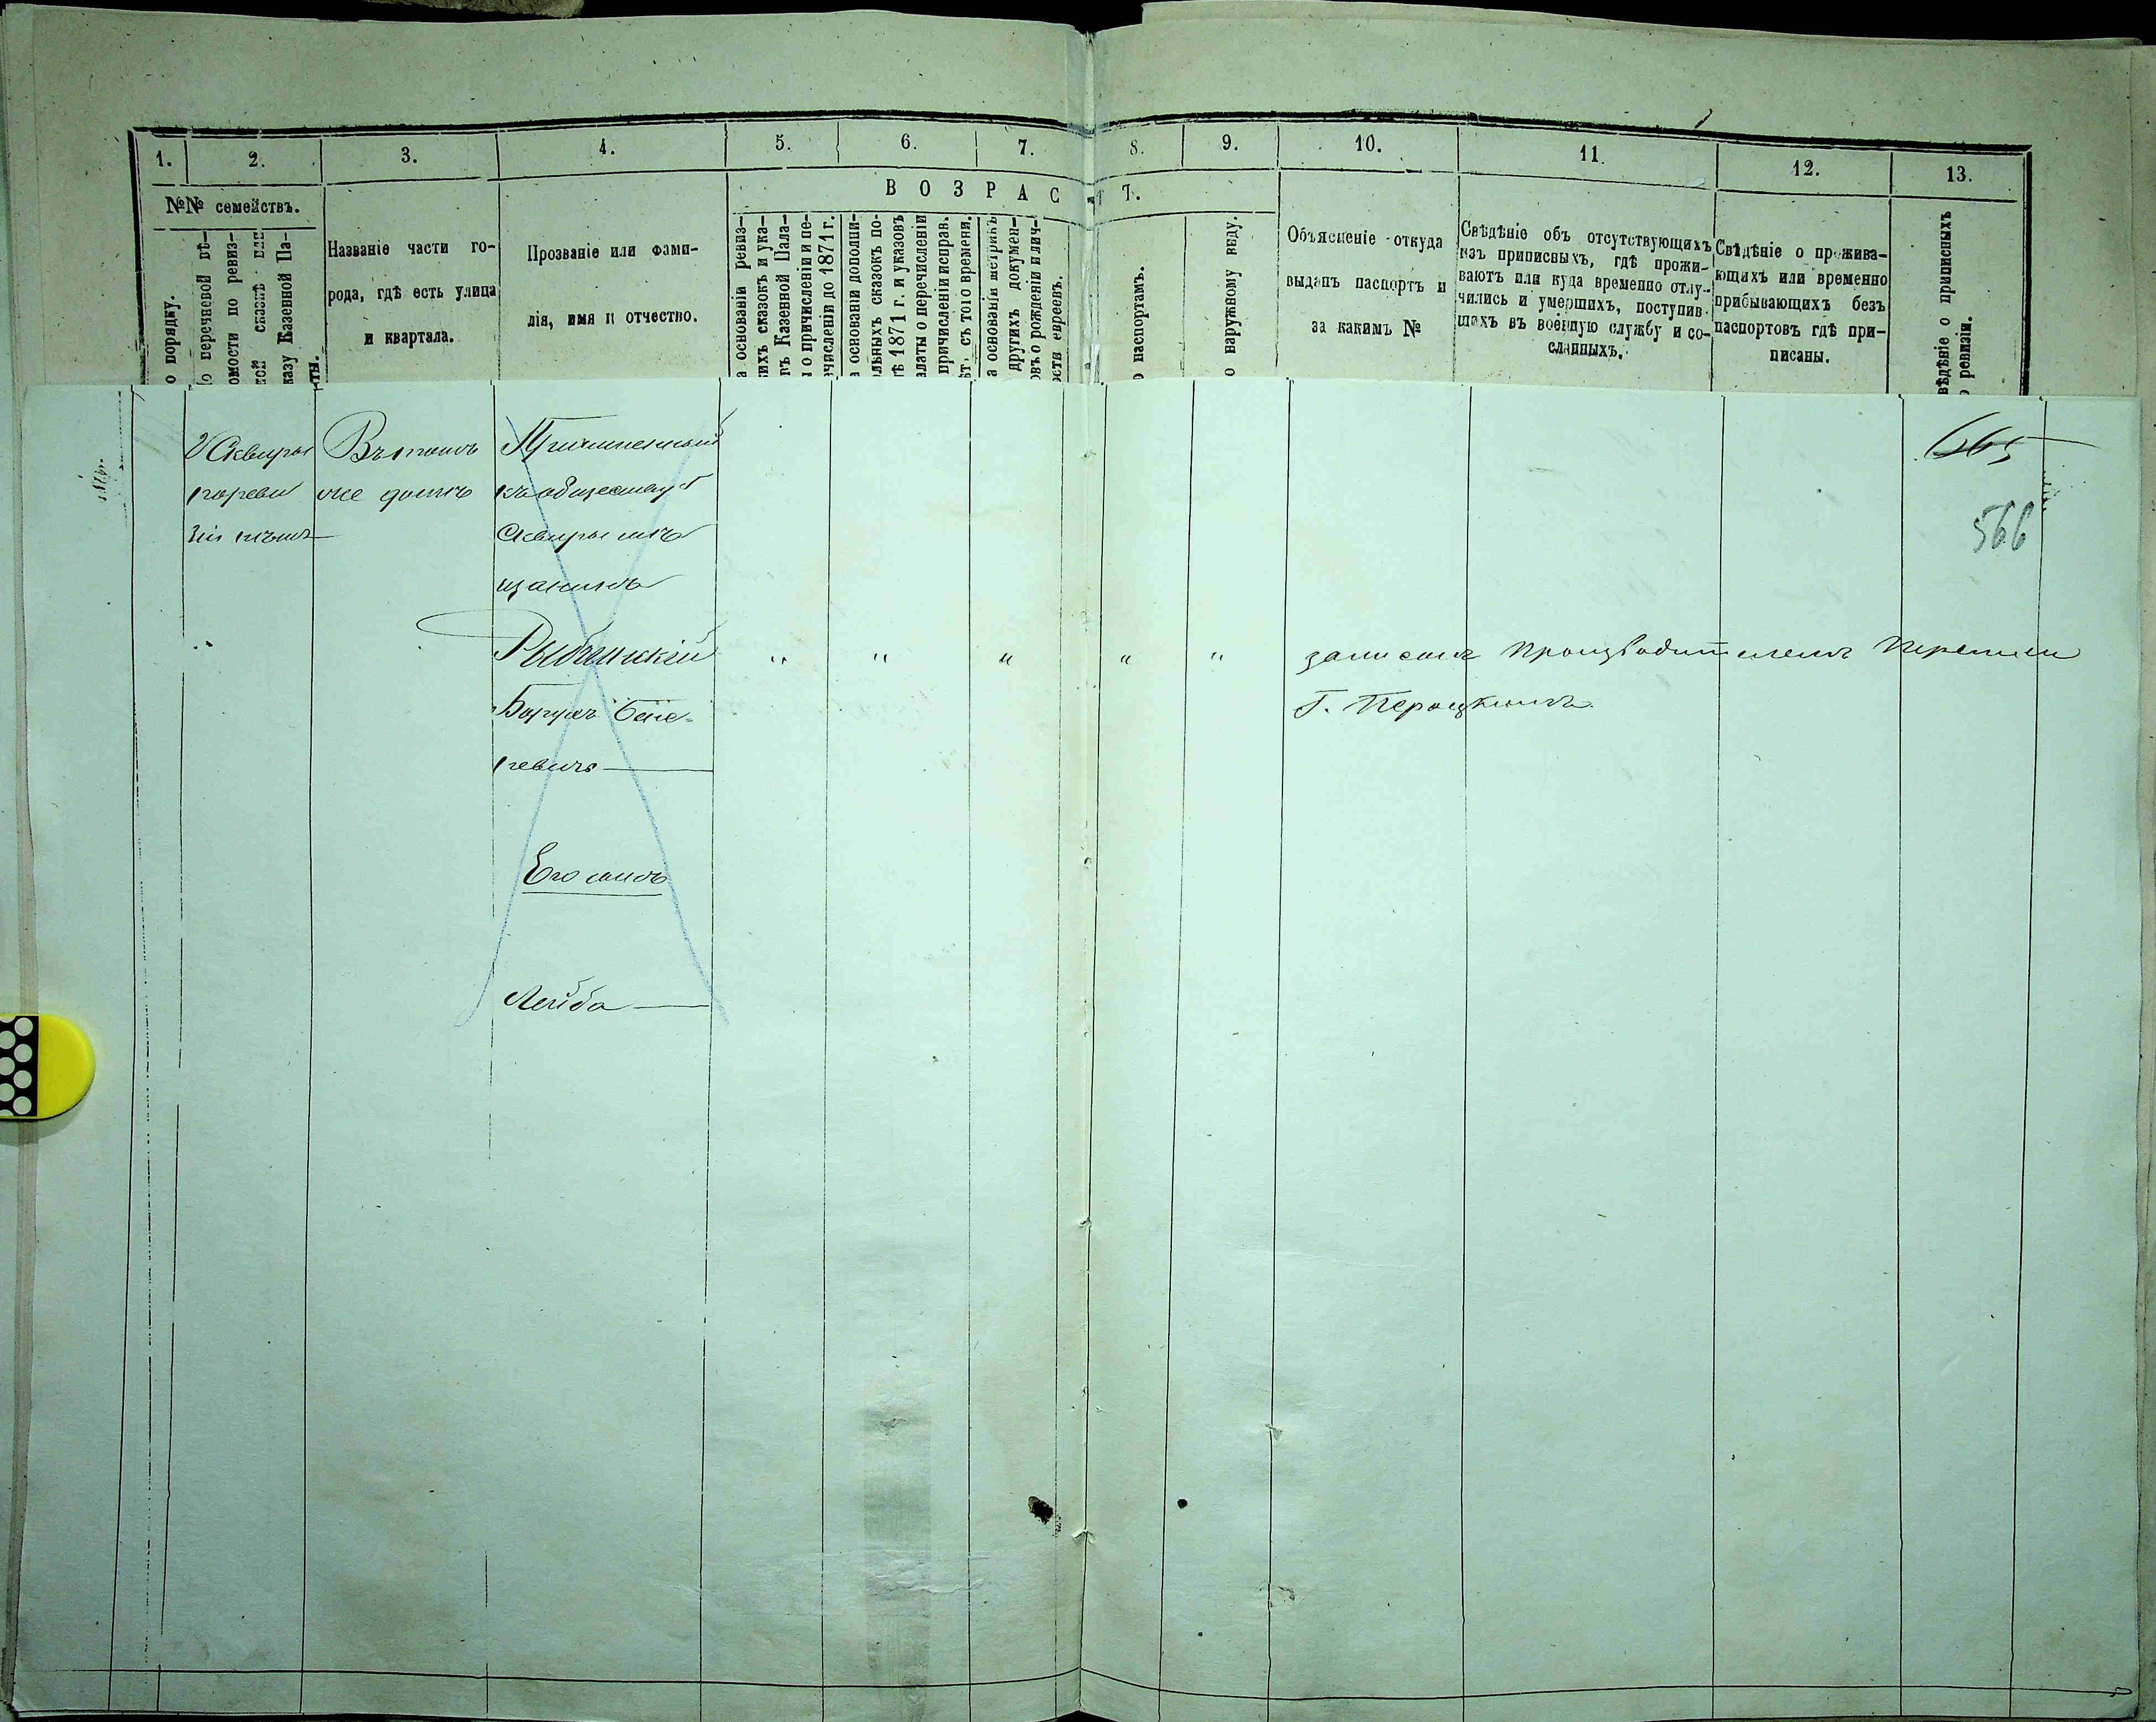 1. 2. 3. 4. 5. 6. 7. 8. 9. 10. 11. 12. 13.
ВОЗРАСТ
№№ семействъ.
о порядку.
о перечневой вѣ-
омости по ревиз-
ной сказкѣ или
казу Казенной Па-
ты.
Названіе части го-
рода, гдѣ есть улица
и квартала.
Прозваніе или фами-
лія, имя и отчество.
а основаніи ревиз-
кихъ сказокъ и ука-
въ Казенной Пала-
ы о причисленіи и пе-
ечисленіи до 1871 г.
а основаніи дополни-
льныхъ сказокъ по-
ѣ 1871 г. и указовъ
алаты о перечисленіи
причисленіи исправ.
ѣт. съ того времени.
а основаніи метрикъ
другихъ докумен-
овъ о рожденіи и лич-
ости евреевъ.
о паспортамъ.
о наружному виду.
Объясненіе откуда
выданъ паспортъ и
за какимъ №
Свѣдѣніе объ отсутствующихъ
изъ приписныхъ, гдѣ прожи-
ваютъ или куда временно отлу-
чились и умершихъ, поступив-
шихъ въ военную службу и со-
сланныхъ.
Свѣдѣніе о прожива-
ющихъ или временно
прибывающихъ безъ
паспортовъ гдѣ при-
писаны.
вѣдѣніе о приписныхъ
о ревизіи.
г Сквиры
по реви
зіи нѣтъ
Въ томъ
же домѣ
Причисленный
къ обществу г
Сквиры мѣ
щанинъ
Рыбчинскій
Борухъ
Его сынъ
Лейба
" " " " "
записанъ производителемъ переписи
Г.
565
566